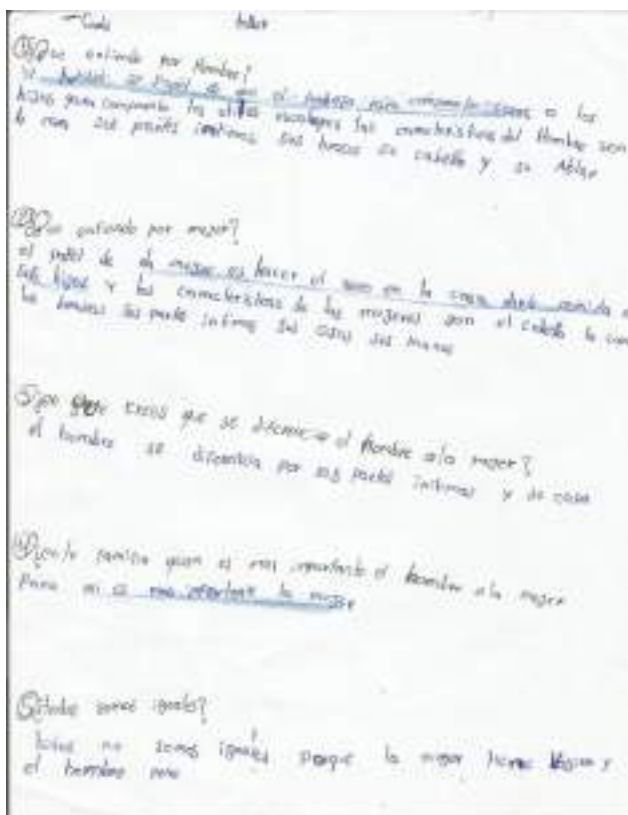 taller
① Que entiendo por Hombre?
el trabaja para comprarle cosas a los
hijos para comprarle los utiles escolares las caracteristica del Hombre son
la cara sus partes intimas sus brasos su cabello y su Ablar
② Que entiendo por mujer?
el papel de la mujer es hacer el aseo en la casa darle comida a
sus hijos y las caracteristicas de las mujeres son el cabello la cara
las partes intimas sus manos
que se diferencia el Hombre a la mujer?
el hombre se diferencia por sus partes intimas y su casa
en la familia quien es mas importante el hombre o la mujer
Para mi es mas importante la mujer
⑤ todos somos iguales?
todos no somos iguales porque la mujer tiene y
el hombre